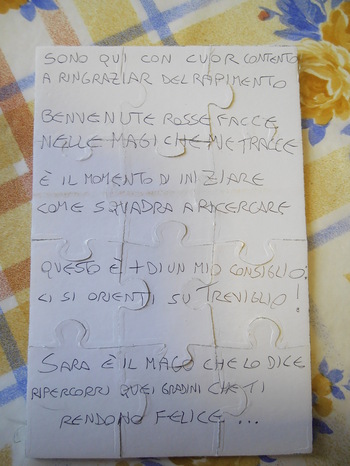 SONO QUI CON CUOR CONTENTO
A RINGRAZIAR DEL RAPIMENTO
BENVENUTE ROSSE FACCE
NELLE MAGICHE MIE TRACCE
È IL MOMENTO DI INIZIARE
COME SQUADRA A RICERCARE
QUESTO È + DI UN MIO CONSIGLIO:
CI SI ORIENTI SU TREVIGLIO!
SARA È IL MAGO CHE LO DICE
RIPERCORRI QUEI GRADINI CHE TI
RENDONO FELICE ...